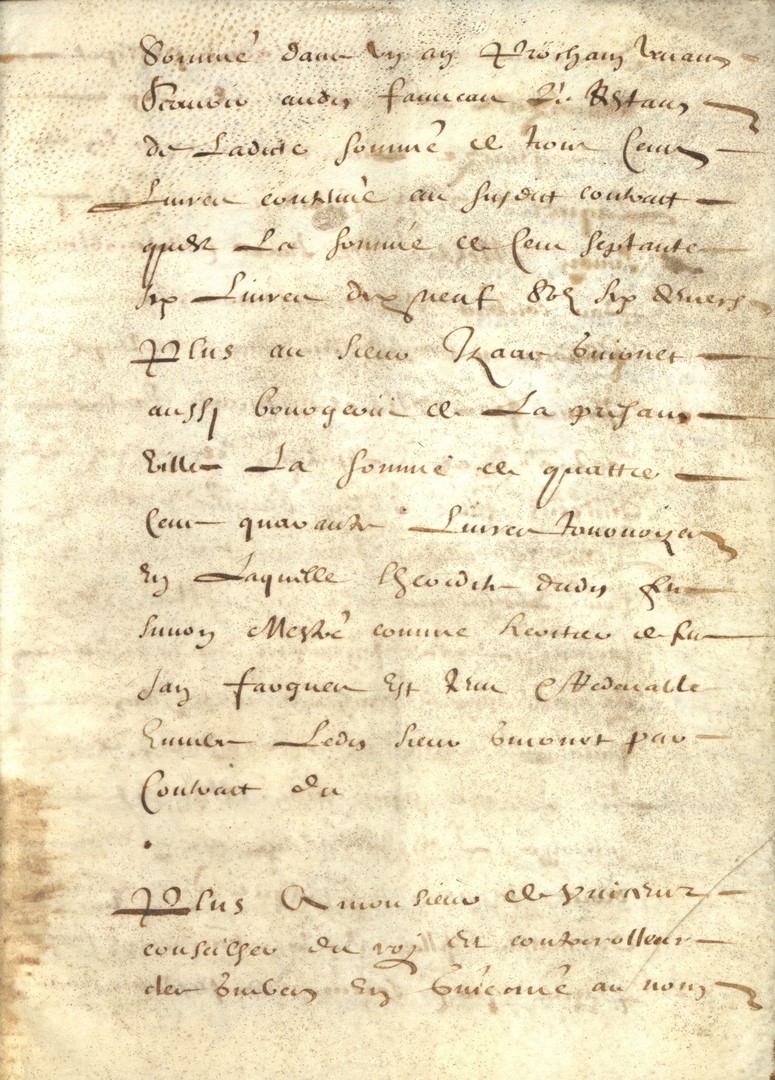 Somme dans un an prochain venant
scavoir audit fauueau le restans
de Ladicte somme de trois cens
Liures contenue au susdit contraict
quest La somme de cens septante
six Liures dix neuf solz six deniers
Plus au sieur Izaac Guionet
aussi bourgeois de La presant
ville La somme de quattre
cens quarante Liures tournoizes
En Laquelle lheoirdite dudit feu
simon Mestre comme heoritier de feu
Jan faoguer Est tenu Et Redeuable
Enuers Ledit sieur Guionet par
Contraict du
Plus A monsieur de
conseilher du roy Et contoorolleur
des En Guienne au nom